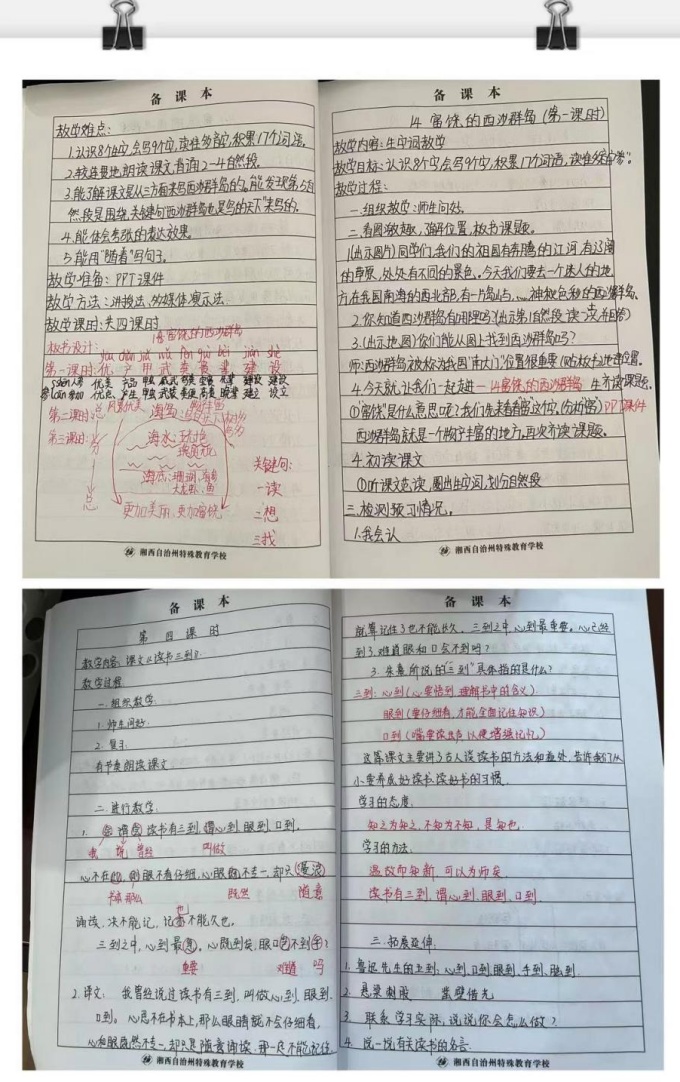 备课本
教学难点:
1.认识8个生字,会写9个字,读准多音字,积累17个词语。
2.有感情地朗读课文,背诵2—4自然段
3.能了解课文是从三方面来写西沙群岛的。能发现第5自
然段是围绕关键句“西沙群岛也是鸟的天下”来写的。
4.能体会夸张的表达效果。
5.能用“随着”写句子。
教学准备:PPT课件
教学方法:讲授法、多媒体演示法
教学课时:共四课时
板书设计:
富饶的西沙群岛
第一课时: 优 产 甲 武 贵 备 建 设
第二课时:总 风景优美 海岛
第三课时:分
海水:
海底:珊瑚、海参
大龙虾、鱼
总 更加美丽、更加富饶
关键句:
一读
二想
三找
湘西自治州特殊教育学校
备课本
14 富饶的西沙群岛(第一课时)
教学内容:生字词教学
教学目标:认识8个字会写9个字,积累17个词语,读准多音字“参”。
教学过程:
一.组织教学:师生问好。
二.看图激趣,了解位置,板书课题。
1(出示图片)同学们,我们的祖国有奔腾的江河,有辽阔
的草原,处处有不同的景色。今天我们要去一个迷人的地
方在我国南海的西北部,有一片岛屿、……神秘色彩的西沙群岛
2.你知道西沙群岛在哪里吗?(出示第1自然段
3.(出示地图)你们能从图上找到西沙群岛吗?
师:西沙群岛被称为我国“南大门”位置很重要
4.今天就让我们一起走进—14富饶的西沙群岛 生齐读课题。
①“富饶”是什么意思呢?我们先来看看“富”这个字。(分析“富”)PPT课件
西沙群岛就是一个物产丰富的地方,再次齐读课题。
4.初读课文
①听课文范读,圈出生字词,划分自然段
三.检测预习情况。
1.我会认
湘西自治州特殊教育学校
备课本
第四课时
教学内容:课文《读书三到》
教学过程
一.组织教学.
1.师生问好.
2.复习.
有节奏朗读课文
二.进行教学.
1.余尝谓读书有三到,谓心到、眼到、口到。
我 说 曾经 叫做
心不在此,则眼不看仔细,心眼既不专一,却只漫浪
书本 那么 既然 随意
诵读,决不能记,记亦不能久也。
也
三到之中,心到最急。心既到矣,眼口岂不到乎?
重要 难道 吗
2.译文: 我曾经说过读书有三到,叫做心到、眼到、
口到。心思不在书本上,那么眼睛就不会仔细看,
心和眼既然不专一,却只是随意诵读,那一定不能记住,
湘西自治州特殊教育学校
备课本
就算记住了也不能持久。三到之中,心到最重要。心已经
到了,难道眼和口会不到吗?
3.朱熹所说的“三到”具体指的是什么?
三到:心到(心要悟到,理解书中的含义)
眼到(要仔细看,才能全面记住知识)
口到(嘴里读出声以便增强记忆)
这篇课文主要讲了古人谈读书的方法和益处,告诉我们从
小要养成好读书,读好书的习惯.
学习的态度.
知之为知之,不知为不知,是知也
学习的方法.
温故而知新,可以为师矣.
读书有三到,谓心到、眼到、口到.
三.拓展延伸.
1.鲁迅先生的五到:心到、口到、眼到、手到、脑到
2.悬梁刺股 凿壁借光
3.联系学习实际,说说你会怎么做?
4.说一说有关读书的名言.
湘西自治州特殊教育学校